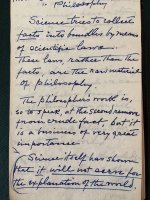 to Philosophy
Science tries to collect
facts into bundles by means
of scientific laws.
These laws, rather than the
facts, are the raw material
of philosophy.
The philosopher's work is,
so to speak, at the second remove
from crude fact, but it
is a business of very great
importance.
Science itself has shown
that it will not serve for
the explanation of the world.